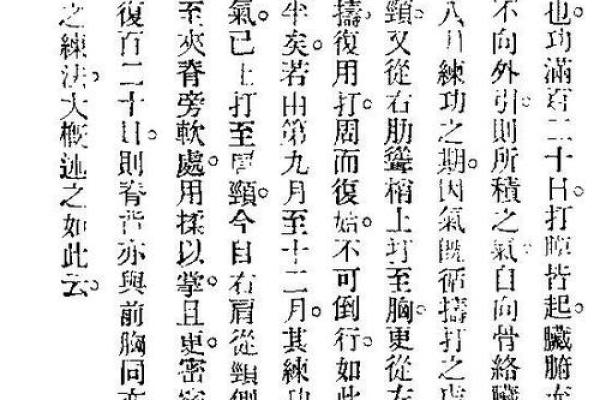 也。功滿百二十日。打皆起。臟腑
不向外引。則所積之氣。自向骨絡臟
八月練功之期。因氣既循擣打之
頸。又從右肋聳梢上打至胸。更從左
擣。復用打。周而復始。不可倒行。如此
半矣。若由第九月至十二月。其練功
氣。已上打至頸。今自右肩從頸側
至夾脊旁軟處。用揉以掌。且更密
復百二十日。則脊背亦與前胸同
之練法。大概述之如此云。